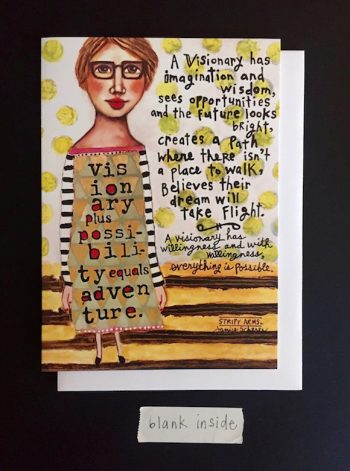 A Visionary has
imagination and
wisdom,
sees opportunities
and the future looks
bright,
creates a path
where there isn't
a place to walk,
Believes their
dream will
take flight.
A visionary has
willingness and with
willingness,
everything is possible.
vis
ion
ary
plus
possi-
bili-
ty equals
adven
ture.
STRIPY ARMS
blank inside